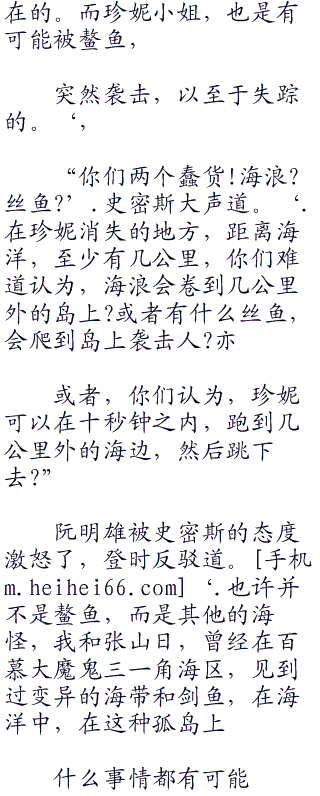 在的。而珍妮小姐，也是有
可能被鳌鱼，
突然袭击，以至于失踪
的。‘，
“你们两个蠢货!海浪?
丝鱼?’.史密斯大声道。‘.
在珍妮消失的地方，距离海
洋，至少有几公里，你们难
道认为，海浪会卷到几公里
外的岛上?或者有什么丝鱼，
会爬到岛上袭击人?亦
或者，你们认为，珍妮
可以在十秒钟之内，跑到几
公里外的海边，然后跳下
去?”
阮明雄被史密斯的态度
激怒了，登时反驳道。[手机
m.heihei66.com]‘.也许并
不是鳌鱼，而是其他的海
怪，我和张山日，曾经在百
慕大魔鬼三一角海区，见到
过变异的海带和剑鱼，在海
洋中，在这种孤岛上
什么事情都有可能